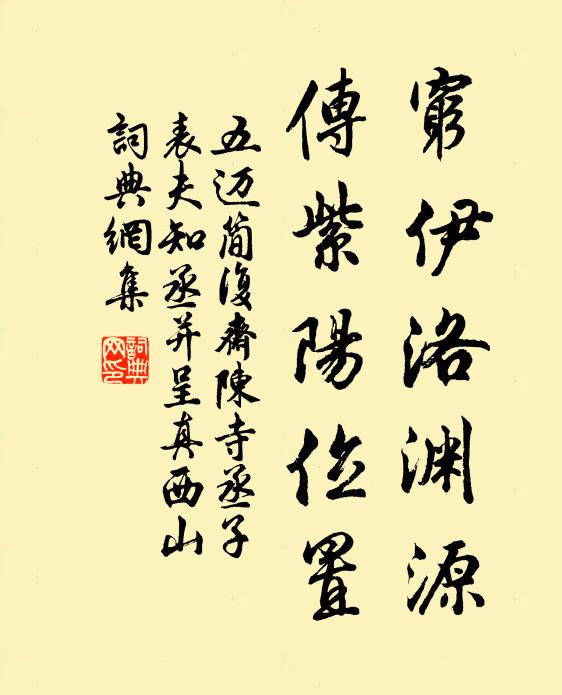 窮伊洛渊源
傳紫陽位置
五迈簡復齋陳寺丞子
表夫知丞并呈真西山
詞典網集
詞典网印